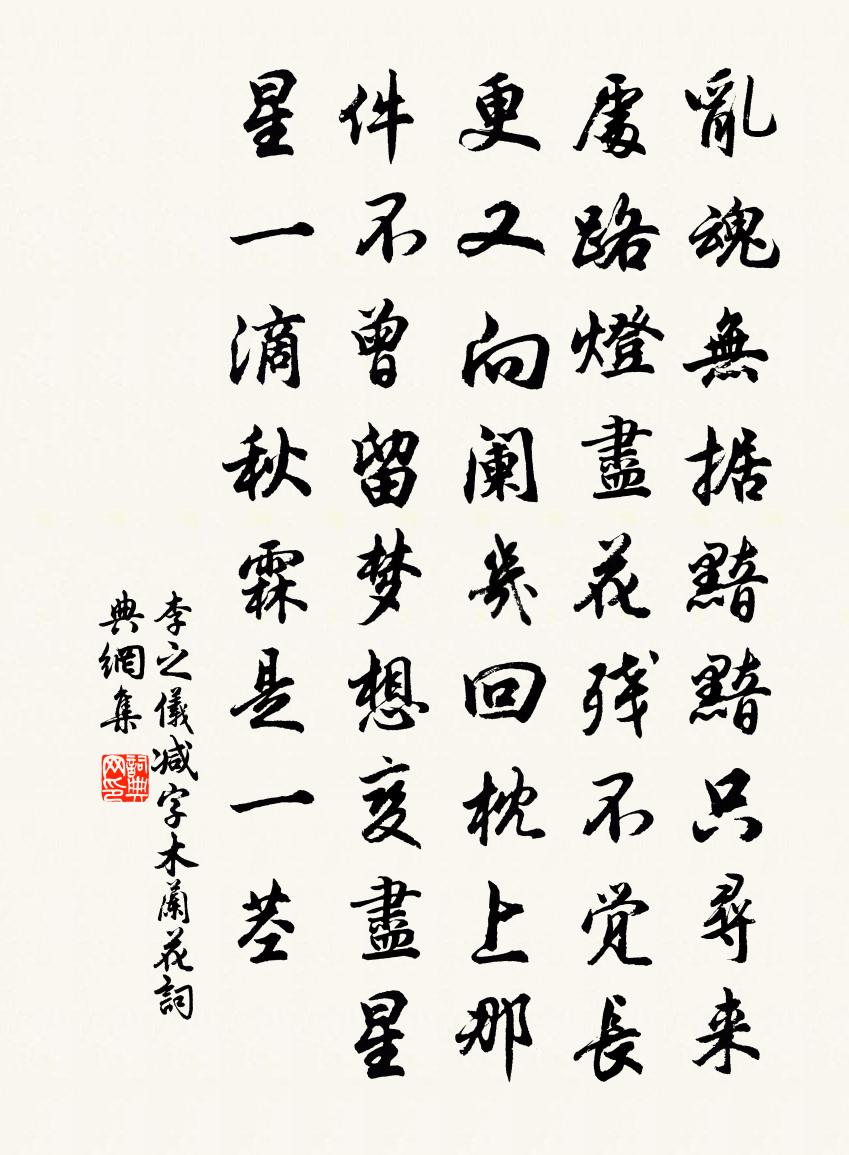 亂魂無据黯黯只尋来
處路燈盡花残不覚長
更又向阑幾回枕上那
件不曾留梦想变盡星
星一滴秋霖是一茎
李之儀减字木蘭花詞
典網集
詞典网印